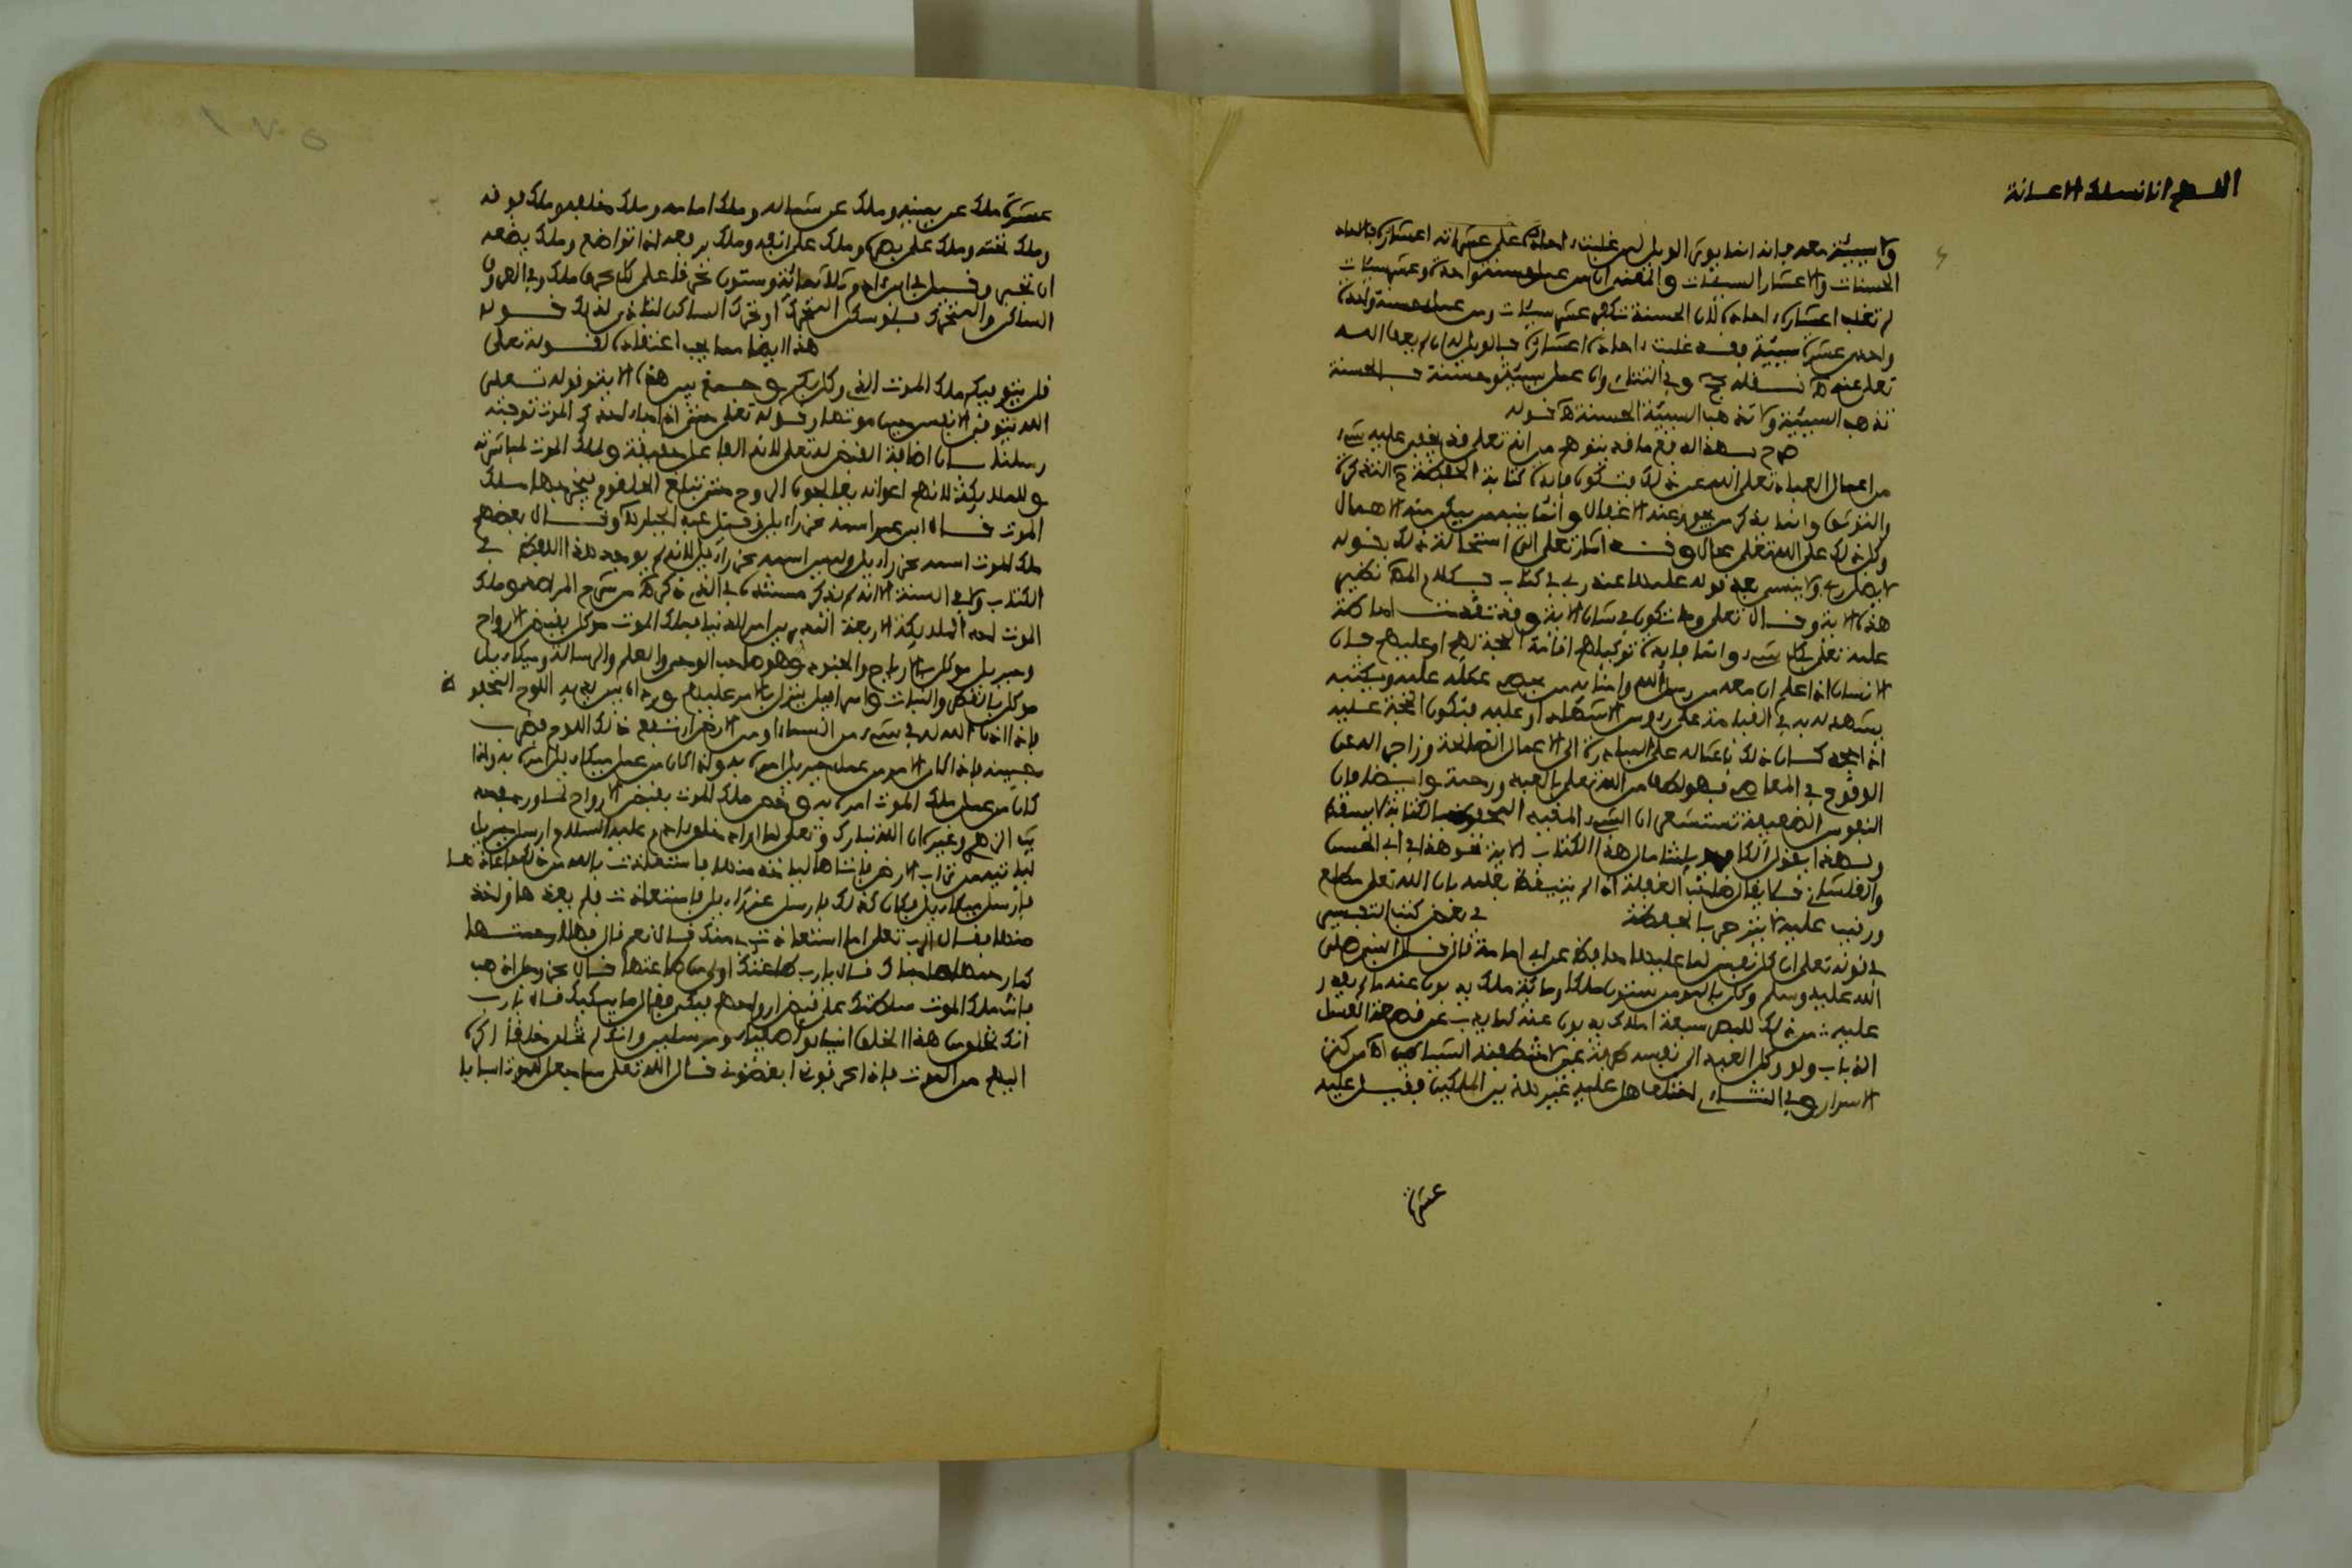 اللهم انا نسلك الاعانة
ولا سيئة معه فانه انما يوتى الويل لمن غلبت ءاحاده على عشراته اعشاره فالاحاد
الحسنات والاعشار السيئات والمعنى ان من عمل حسنة واحدة وعشر سيئات
لم تغلب اعشاره ءاحاده لان الحسنة تكفر عشر سيئات ومن عمل حسنة واحدة
واحدى عشرة سيئة فقد غلبت ءاحاده اعشاره فالويل له ان لم يعف الله
تعلى عنه نقله وفي الثتاءى وان عمل سيئة وحسنة فالحسنة
تذهب السيئة ولا تذهب السيئة الحسنة قوله
بهذا لدفع ما قد يتوهم من انه تعلى قد يخفى عليه شىء
من اعمال العباد تعلى الله عن ذلك فتكون فايدة كتابة الحفظة التذكرة
والتوثيق وانما يذكر من يجوز عنه الاغفال وانما ينبه من يمكن منه الاهمال
وكل ذلك على الله تعلى محال وقد اشار تعلى الى استحالة ذلك بقوله
لا يضل ربي ولا ينسى بعد قوله علمها عند ربي في كتاب
هذه الاية وقال تعلى وما تكون في شان الاية وقد تقدمت احاطة
علمه تعلى بكل شىء وانما فايدة توكيلهم اقامة الحجة لهم او عليهم فان
الانسان اذا علم ان معه من رسل الله وامنايه من يحصي عمله عليه ويكتبه
يشهد له به في القيامة على رءوس الاشهاد او عليه فتكون الحجة عليه
كان ذلك باعثا له على المبادرة الى الاعمال الصالحة وزاجرا له عن
الوقوع في المعاصي فهو لطف من الله تعلى بالعبد ورحمة وايضا فان
النفوس الضعيفة تستشعر ان الشىء المقيد المحفوظ بالكتابة لا يسقط
ولهذا يقول الكافر يا ويلتنا مال هذا الكتاب الاية نحو هذا في ابي الحسن
والفلشاني قال غلبت الغفلة اذ لم يتيقظ بعلمه بان الله تعلى مطلع
ورقيب عليه لا ينزجر بالحفظة في بعض كتب التفسير
في قوله تعلى ان كل نفس لما عليها حافظ عن ابي امامة قال قال النبي صلى
الله عليه وسلم وكل بالمومن ستون ملكا ومائة ملك يذبون عنه ما لم يقدر
عليه من ذلك للبصر سبعة املاك يذبون عنه كما يذب عن قصعة العسل
الذباب ولو وكل العبد الى نفسه طرفة عين لاختطفته الشياطين من كنز
الاسرار وفي الثتاءى اختلف هل عليه غير هذين الملكين فقيل عليه
عشرة
عشرة ملك عن يمينه وملك عن شماله وملك امامه وملك خلفه وملك فوقه
وملك تحته وملك على بصره وملك على انفه وملك يرفعه اذا تواضع وملك يضعه
ان تجبر وقيل في ابن ءادم ثلاثمائة وستون عرقا على كل عرق ملك وفي العروق
الساكن والمتحرك فلو سكن المتحرك او تحرك الساكن لتاذى لذلك قوله
هذا ايضا مما يجب اعتقاده لقوله تعلى
قل يتوفيكم ملك الموت الذي وكل بكم وجمع بين هذه الاية وقوله تعلى
الله يتوفى الانفس حين موتها وقوله تعلى حتى اذا جاء احدكم الموت توفته
رسلنا بان اضافة القبض له تعلى لانه الفاعل حقيقة ولملك الموت لمباشرته
وللملايكة لانهم اعوانه يعالجون الروح حتى تبلغ الحلقوم فيقبضها ملك
الموت قال ابن عمر اسمه عزراءيل وقيل عبد الجبار وقال بعضهم
ملك الموت اسمه عزراءيل وليس اسمه عزراءيل لانه لم يوجد هذا اللفظ في
الكتاب ولا في السنة الا انه لم يذكر مستنده في الذي ذكره من شرح المراصد وملك
الموت احد الملايكة الاربعة المدبرين امر الدنيا فملك الموت موكل بقبض الارواح
وجبريل موكل بالارياح والجنود وهو صاحب الوحي والعلم والرسالة وميكاءيل
موكل بالقطر والنبات واسرافيل ينزل بالامر عليهم وورد ان بين يديه اللوح المحفوظ
فاذا اذن الله له في شىء من السماء او من الارض ارتفع ذلك اللوح فضرب
جبينه فاذا كان الامر من عمل جبريل امره به واذا كان من عمل ميكاءيل امره به واذا
كان من عمل ملك الموت امره به وخص ملك الموت بقبض الارواح لما ورد
الزهر وغيره ان الله تبارك وتعلى لما اراد خلق ءادم عليه السلام ارسل جبريل
لياتيه من تراب الارض فاتاها لياخذ منها فاستعاذت بالله من ذلك فاعاذها
فارسل ميكاءيل فكان كذلك فارسل عزراءيل فاستعاذت فلم يعذها واخذ
منها فقال الرب تعلى اما استعاذت بي منك قال نعم قال فهلا رحمتها
كما رحمها صاحباك قال يا رب طاعتك اولى من طاعتها قال عز وجل اذهب
فانت ملك الموت سلطتك على قبض ارواحهم فبكى فقال ما يبكيك قال يا رب
انك تخلق من هذا الخلق انبياء واصفياء ومرسلين وانك لم تخلق خلقا اكره
اليهم من الموت فاذا عرفوني ابغضوني قال الله تعلى ساجعل للموت اسبابا
١٧٥